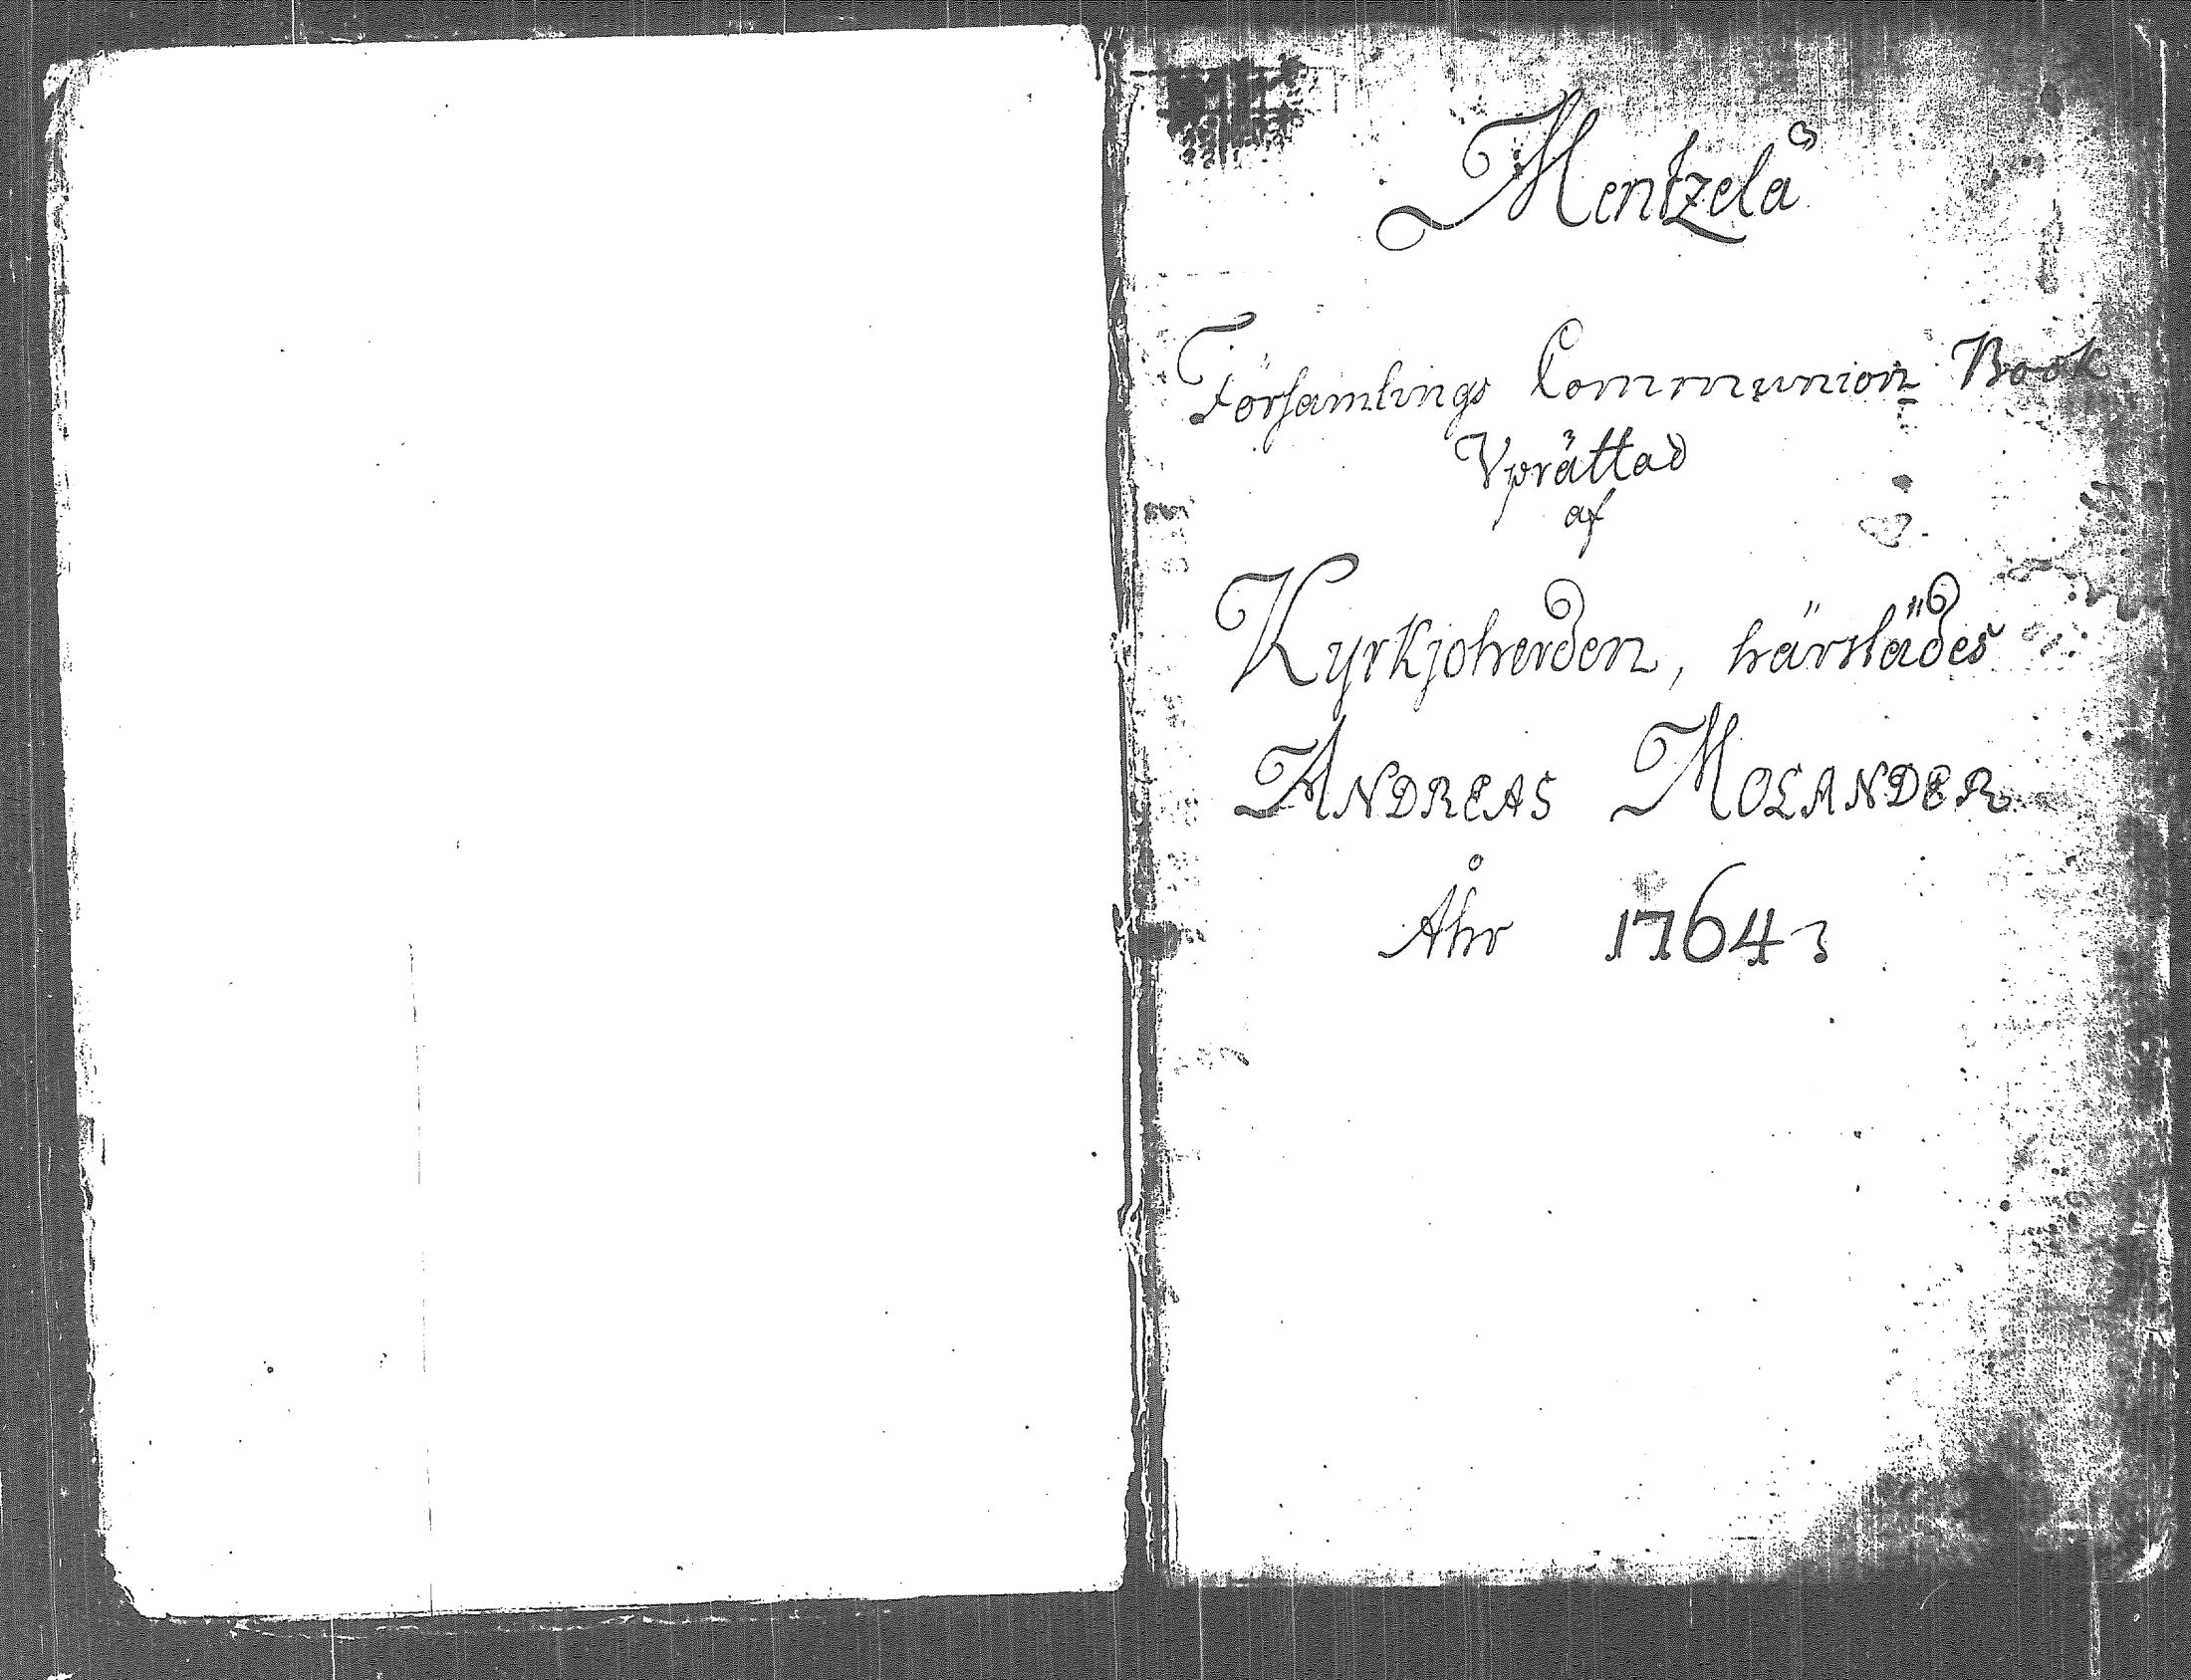 Mentzelå
Församlings Communion Book
Vprättad
af
Kyrkjoherden, härstädes
ANDREAS MOLANDER
Åhr 1764